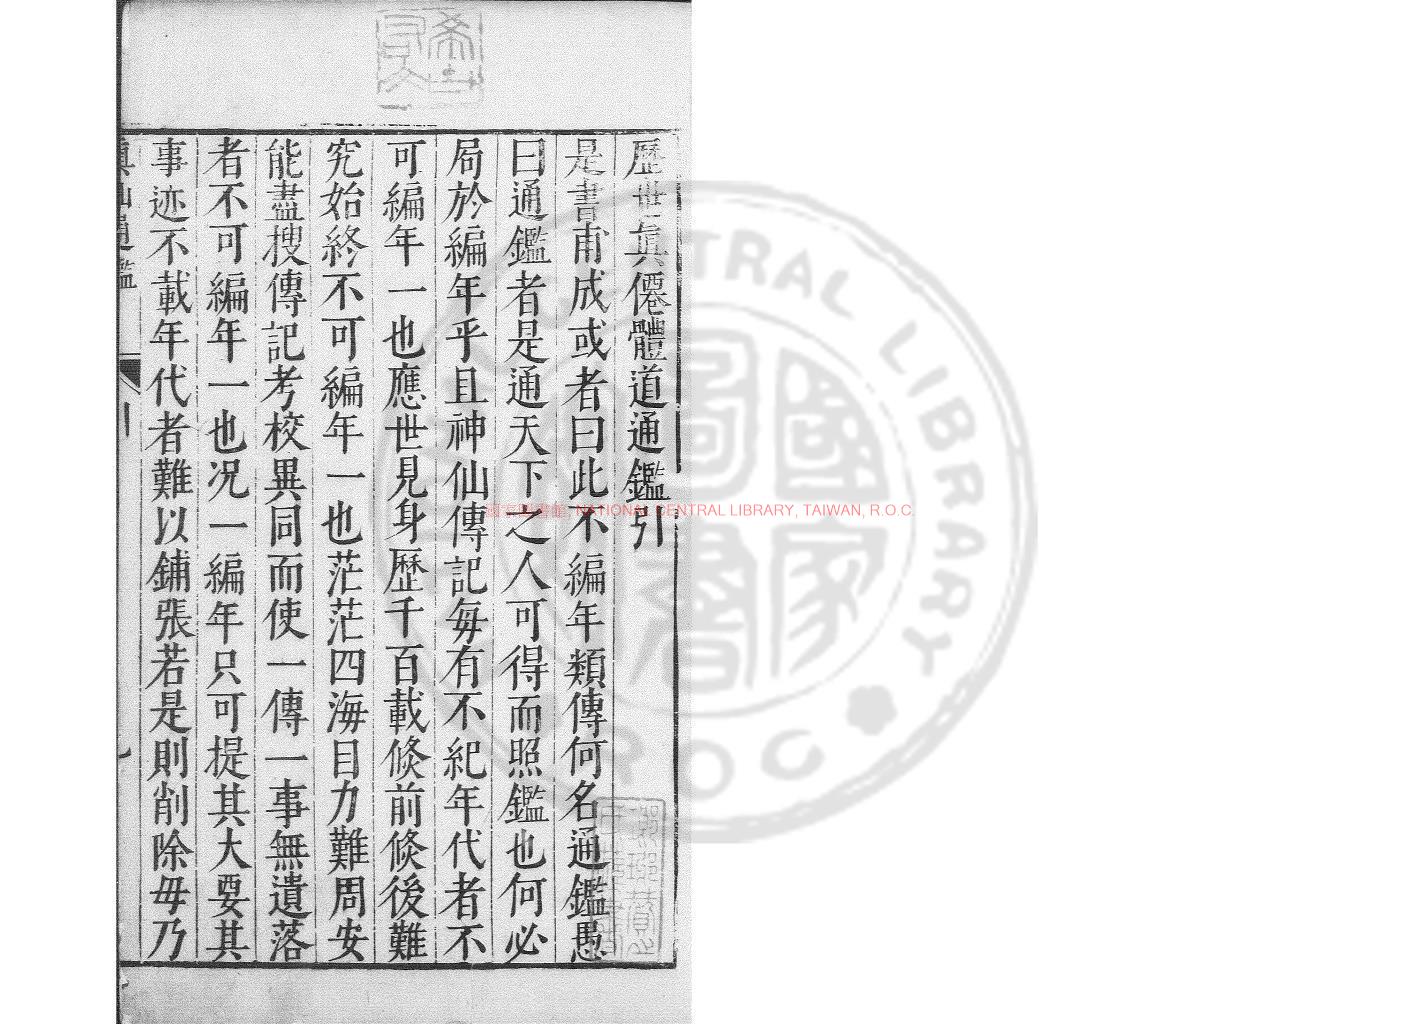 歷世真僊體道通鑑引
是書甫成或者曰此不編年類傳何名通鑑愚
曰通鑑者是通天下之人可得而照鑑也何必
局於編年乎且神仙傳記每有不紀年代者不
可編年一也應世見身歷千百載倐前倐後難
究始終不可編年一也茫茫四海目力難周安
能盡搜傳記考校異同而使一傳一事無遺落
者不可編年一也况一編年只可提其大要其
事迹不載年代者難以鋪張若是則削除毋乃
國家圖書館, NATIONAL CENTRAL LIBRARY, TAIWAN, R.O.C.
CENTRAL LIBRARY
R.O.C
國家圖書